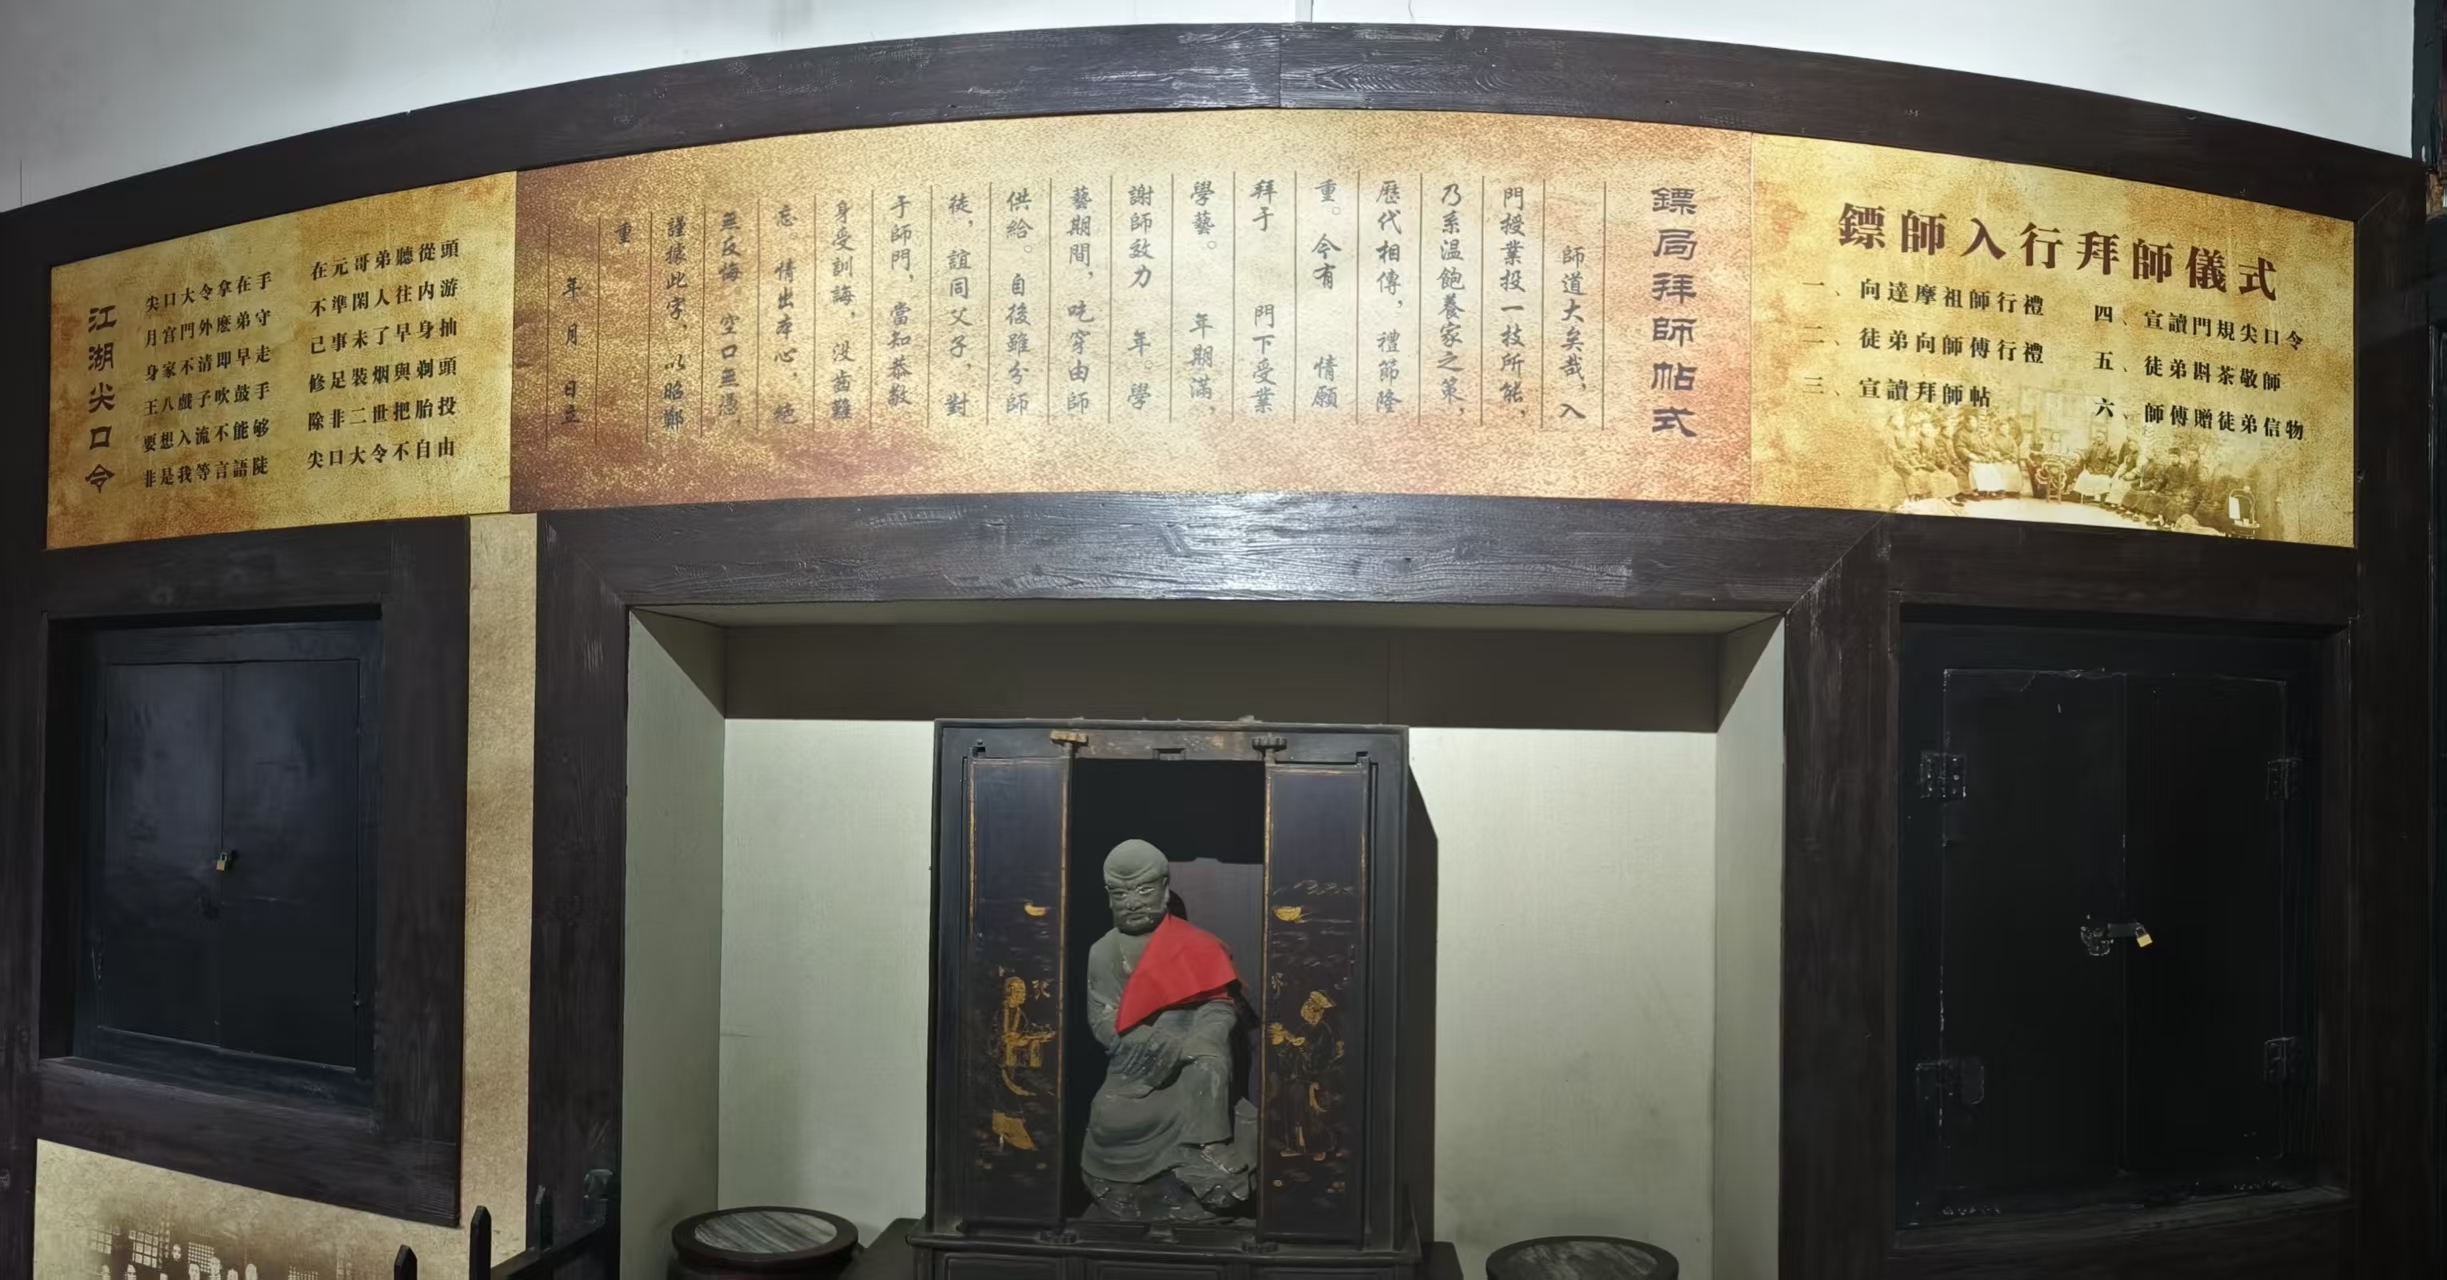 鏢師入行拜師儀式
一、向達摩祖師行禮
二、徒弟向師傅行禮
三、宣讀拜師帖
四、宣讀門規尖口令
五、徒弟斟茶敬師
六、師傅贈徒弟信物
鏢局拜師帖式
師道大矣哉，入
門授業投一技所能，
乃系溫飽養家之策，
歷代相傳，禮節隆
重。今有 情願
拜于 門下受業
學藝。 年期滿，
謝師效力 年。學
藝期間，吃穿由師
供給。自後雖分師
徒，誼同父子，對
于師門，當知恭敬
身受訓誨，没齒難
忘 情出本心，絕
無反悔 空口無憑，
謹據此字，以昭鄭
重
年 月 日立
江湖尖口令
尖口大令拿在手
月宫門外麽弟守
身家不清即早走
王八戲子吹鼓手
要想入流不能够
非是我等言語陡
在元哥弟聽從頭
不準閑人往内游
己事未了早身抽
修足裝烟與剃頭
除非二世把胎投
尖口大令不自由